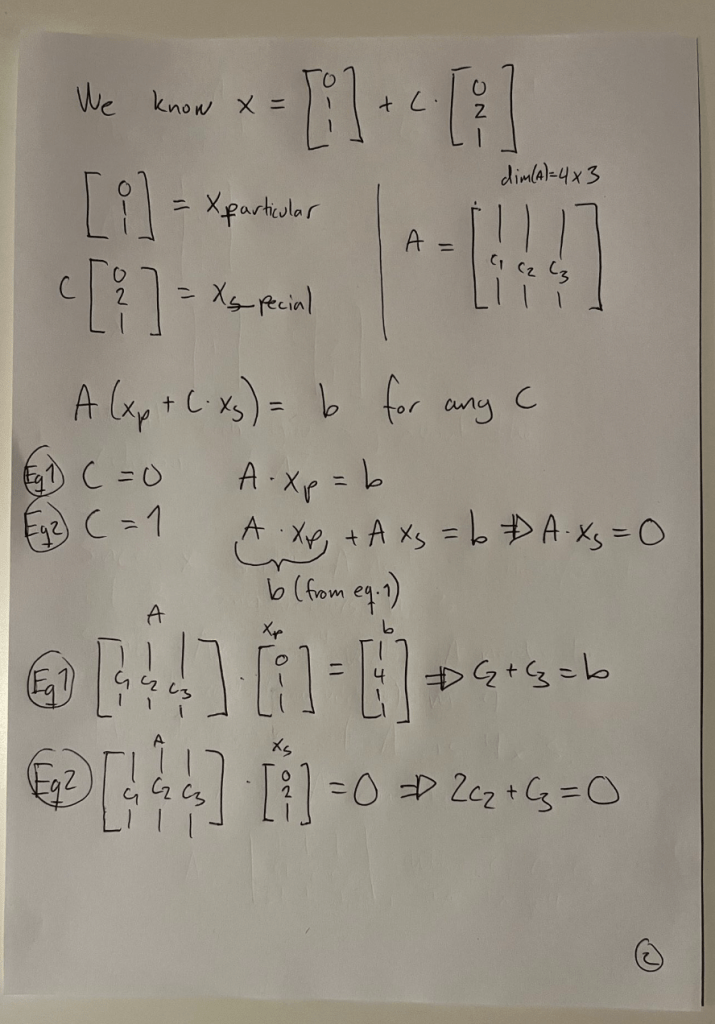 We know x = [0 1 1] + C · [0 2 1]
[0 1 1] = Xparticular
dim(A)=4x3
C [0 2 1] = Xspecial
A = [| | | c1 c2 c3 | | |]
A (xp + C · xs) = b for any C
Eq1 C = 0 A · xp = b
Eq2 C = 1 A · xp + A xs = b ⇒ A · xs = 0
b (from eq.1)
A xp b
Eq1 [| | | c1 c2 c3 | | |] · [0 1 1] = [1 4 1 1] ⇒ c2 + c3 = b
A xs
Eq2 [| | | c1 c2 c3 | | |] · [0 2 1] = 0 ⇒ 2c2 + c3 = 0
2